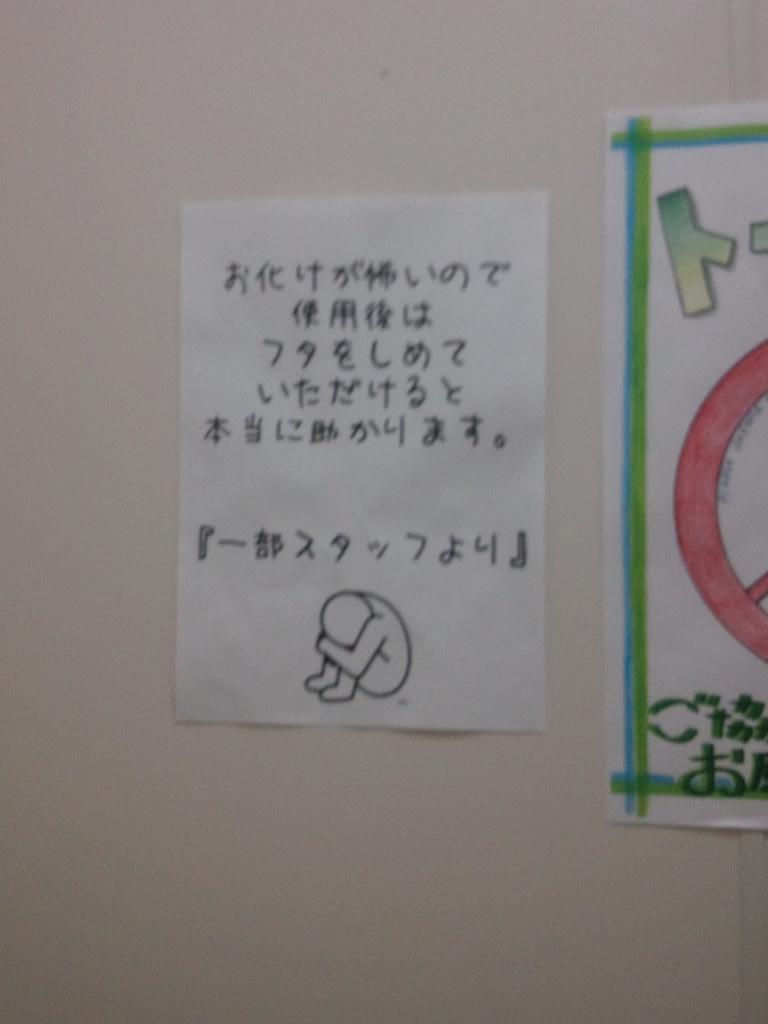 お化けが怖いので
使用後は
フタをしめて
いただけると
本当に助かります。
『一部スタッフより』
ト
ご協
お